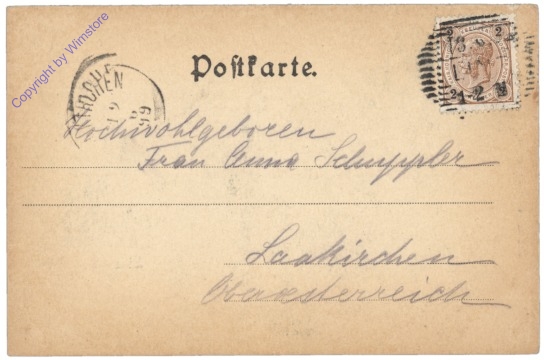 Copyright by Wimstore
Postkarte.
Hochwohlgeboren
Frau Anna Schuppler
Laakirchen
Oberösterreich